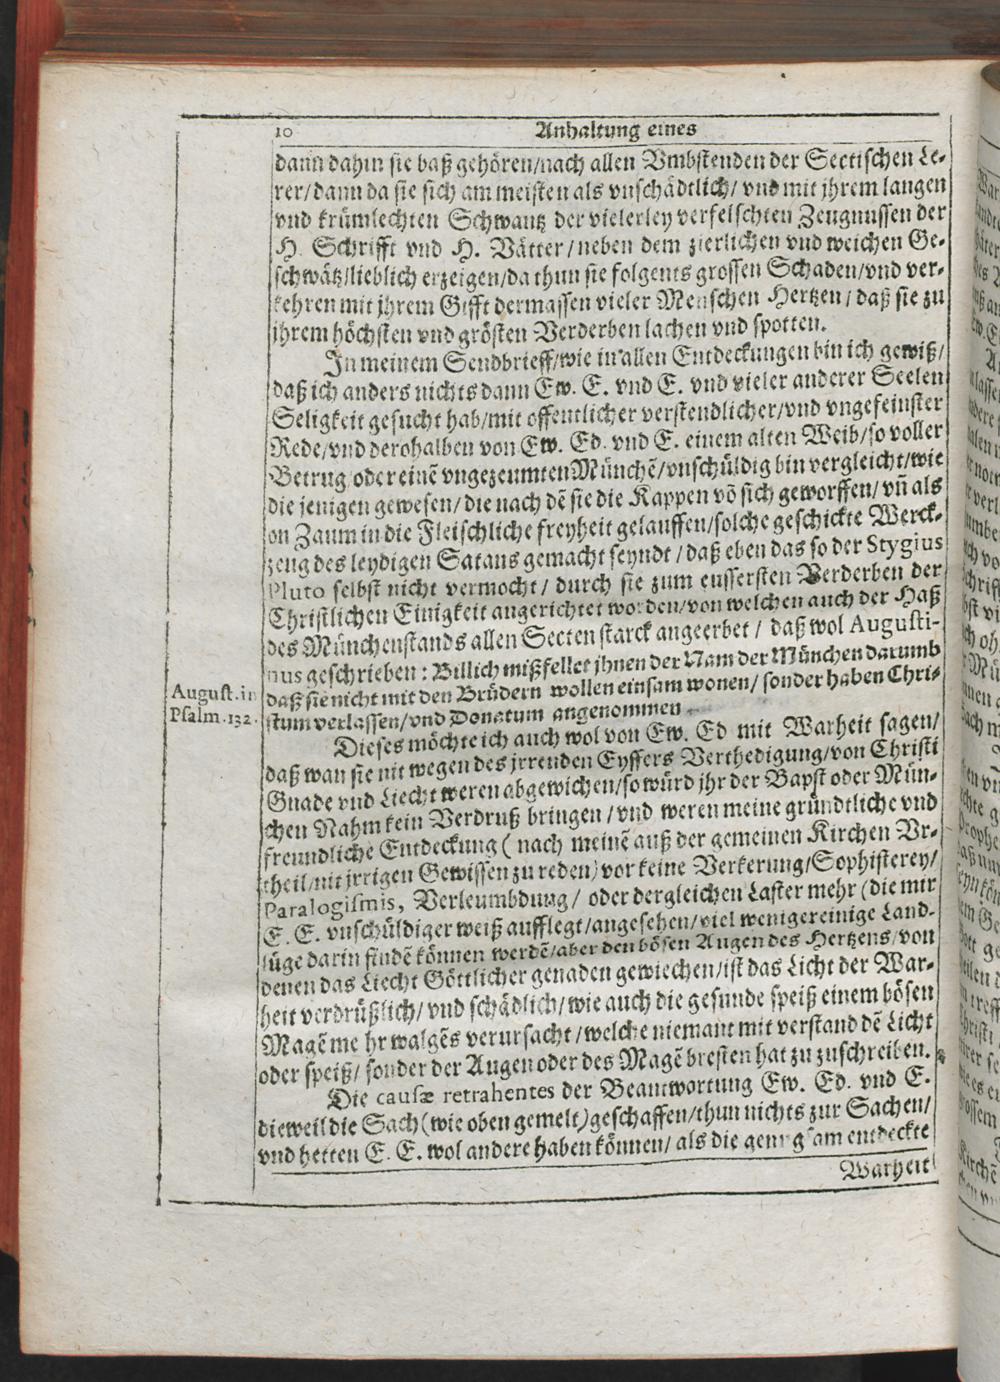 10 Anhaltung eines
dann dahin sie baß gehören/nach allen Vmbstenden der Sectischen Le-
rer/dann da sie sich am meisten als vnschädtlich/ vnd mit jhrem langen
vnd krümlechten Schwantz der vielerley verfelschten Zeugnussen der
H. Schrifft vnd H. Vätter/neben dem zierlichen vnd weichen Ge-
schwätz/lieblich erzeigen/da thun sie folgents grossen Schaden/vnd ver-
kehren mit jhrem Gifft dermassen vieler Menschen Hertzen/ daß sie zu
jhrem höchsten vnd grösten Verderben lachen vnd spotten.
In meinem Sendbrieff/wie in allen Entdeckungen bin ich gewiß/
daß ich anders nichts dann Ew. E. vnd E. vnd vieler anderer Seelen
Seligkeit gesucht hab/mit offentlicher verstendlicher/vnd vngefeinster
Rede/vnd derohalben von Ew. Ed. vnd E. einem alten Weib/so voller
Betrug/oder einē vngezeumten Münchē/vnschüldig bin vergleicht/wie
die jenigen gewesen/die nach dē sie die Kappen vō sich geworffen/ vñ als
on Zaum in die Fleischliche freyheit gelauffen/solche geschickte Werck-
zeug des leydigen Satans gemacht seyndt/daß eben das so der Stygius
Pluto selbst nicht vermocht/ durch sie zum eussersten Verderben der
Christlichen Einigkeit angerichtet worden/von welchen auch der Haß
des Münchenstands allen Secten starck angeerbet/ daß wol Augusti-
nus geschrieben: Billich mißfellet jhnen der Nam der München darumb
August. in daß sie nicht mit den Brüdern wollen einsam wonen/ sonder haben Chri-
Psalm.132. stum verlassen/vnd Donatum angenommen.
Dieses möchte ich auch wol von Ew. Ed mit Warheit sagen/
daß wan sie nit wegen des jrrenden Eyffers Verthedigung/von Christi
Gnade vnd Liecht weren abgewichen/so würd jhr der Bapst oder Mün-
chen Nahm kein Verdruß bringen/vnd weren meine gründtliche vnd
freundliche Entdeckung ( nach meinē auß der gemeinen Kirchen Vr-
theil/mit jrrigen Gewissen zu reden) vor keine Verkerung/Sophisterey/
Paralogismis, Verleumbdung/ oder dergleichen Laster mehr (die mir
E. E. vnschüldiger weiß aufflegt/angesehen/viel weniger einige Land-
lüge darin findē können werdē/aber den bösen Augen des Hertzens/von
denen das Liecht Göttlicher genaden gewiechen/ist das Licht der War-
heit verdrüßlich/ vnd schädlich/wie auch die gesunde speiß einem bösen
Magē mehr walgēs verursacht/welche niemant mit verstand dē Licht
oder speiß/ sonder der Augen oder des Magē bresten hat zu zuschreiben.
Die causæ retrahentes der Beantwortung Ew. Ed. vnd E.
dieweil die Sach (wie oben gemelt) geschaffen/thun nichts zur Sachen/
vnd hetten E. E. wol andere haben können/ als die genugsam entdeckte
Warheit